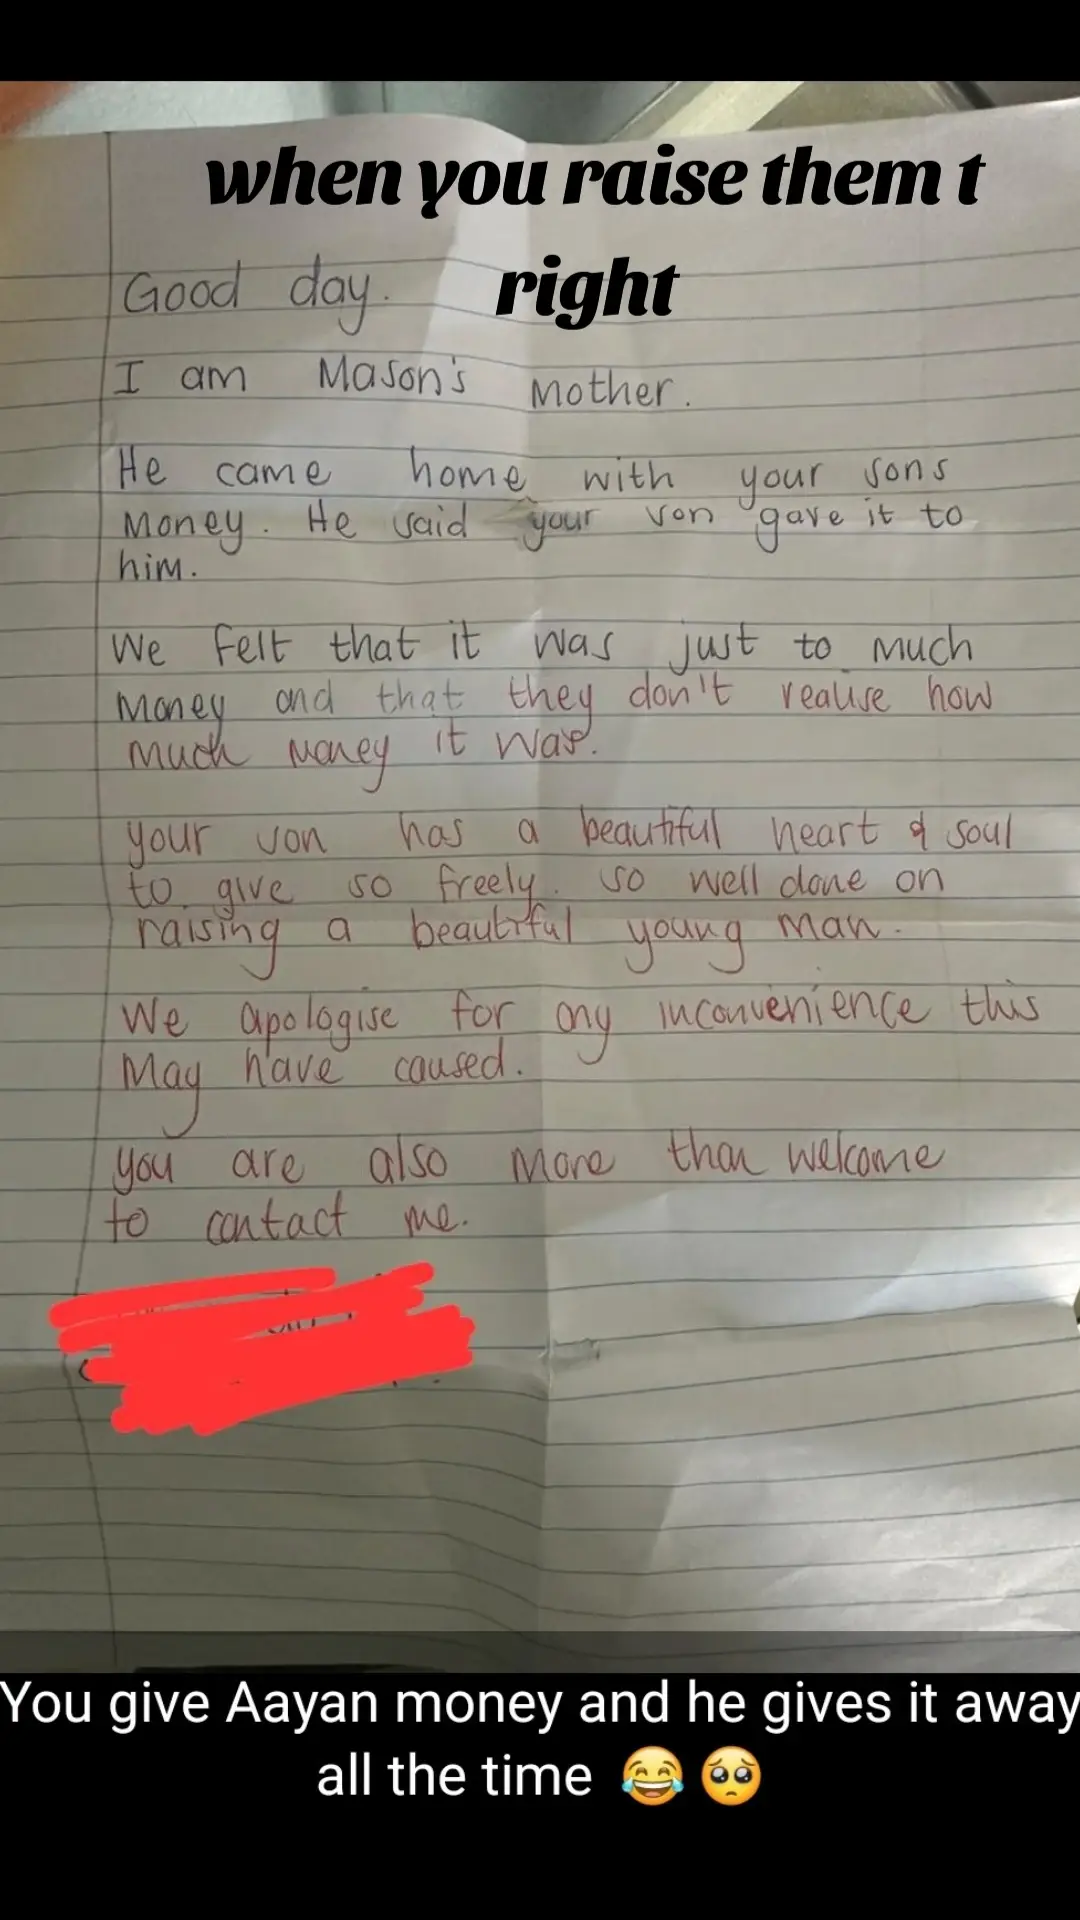 when you raise them t
right
Good day.
I am Mason's Mother.
He came home with your sons
Money. He said your son gave it to
him.
We felt that it was just to much
Money and that they don't realise how
much money it was.
your son has a beautiful heart & soul
to give so freely. so well done on
raising a beautiful young man.
We apologise for any inconvenience this
May have caused.
you are also more than welcome
to contact me.
You give Aayan money and he gives it away
all the time 😂🥺